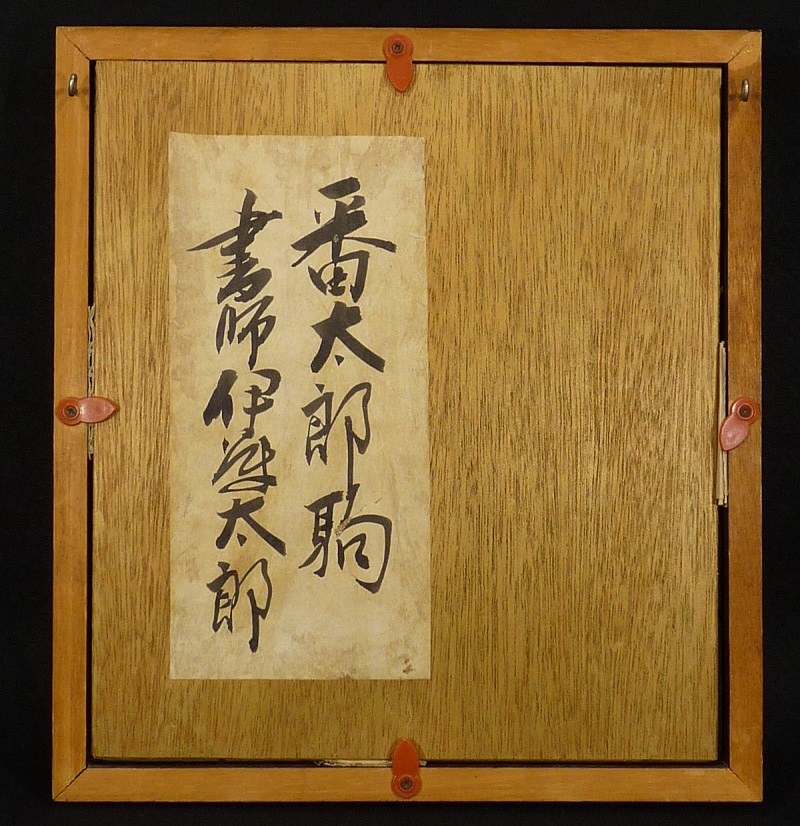 番太郎駒
書師伊達太郎